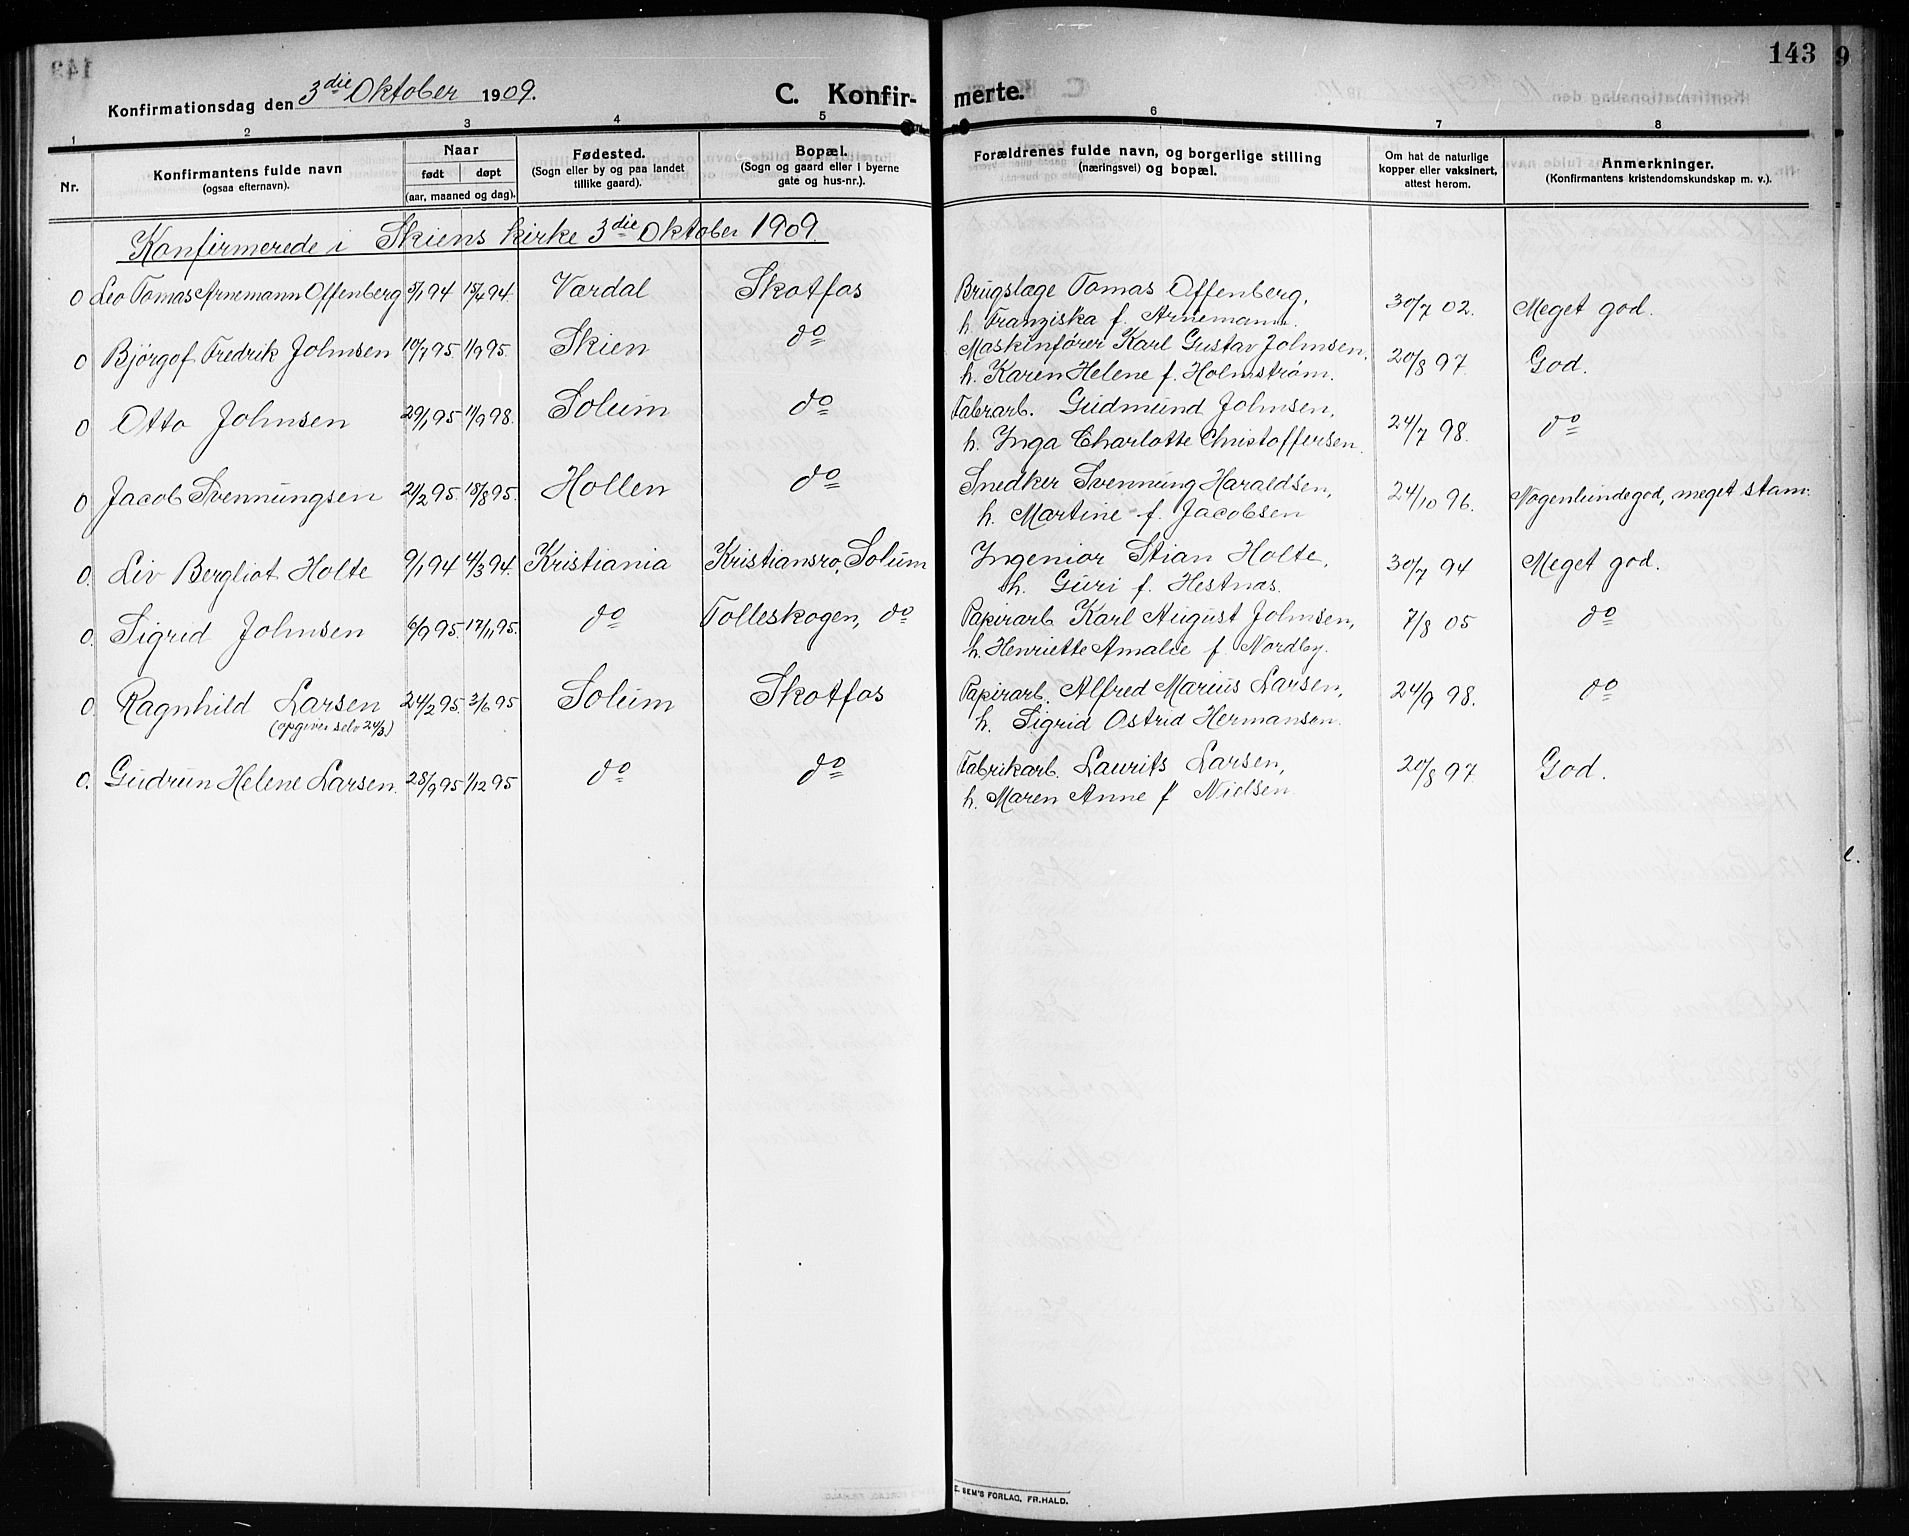 143 9
Konfirmationsdag den 3die Oktober 1909.
C. Konfir- merte.
1 2 3 4 5 6 7 8
Nr.
Konfirmantens fulde navn
(ogsaa efternavn).
Naar
født døpt
(aar, maaned og dag).
Fødested.
(Sogn eller by og paa landet
tillike gaard).
Bopæl.
(Sogn og gaard eller i byerne
gate og hus-nr.).
Forældrenes fulde navn, og borgerlige stilling
(næringsvei) og bopæl.
Om hat de naturlige
kopper eller vaksinert,
attest herom.
Anmerkninger.
(Konfirmantens kristendomskundskap m. v.).
Konfirmerede i Skiens kirke 3die Oktober 1909.
0 Leo Tomas Arnemann Offenberg 5/1 94 15/4 94. Værdal Skotfos Brugslage Tomas Offenberg, 30/7 02. Meget god.
h. Franziska f. Arnemann.
0 Bjørgof. Fredrik Johnsen 10/7 95 1/9 95. Skien do Maskinfører Karl Gustav Johnsen, 20/8 97. God.
h. Karen Helene f. Holmstrøm.
0 Otto Johnsen 29/1 95 11/9 98. Solum do Fabrarb. Gudmund Johnsen, 24/7 98. do
h. Inga Charlotte Christoffersen.
0 Jacob Svennungsen 21/2 95. 18/8 95. Hollen do Snedker Svennung Haraldsen, 24/10 96. Nogenlundegod, meget stam:
h. Martine f. Jacobsen
0. Liv Bergliot Holte 9/1 94 4/3 94. Kristiania Kristiansro, Solum Ingeniør Stian Holte, 30/7 94 Meget god.
h. Guri f. Hestnas.
0. Sigrid Johnsen 6/9 95. 17/11 95. do Tolleskogen, do Papirarb. Karl August Johnsen, 7/8 05 do
h. Henriette Amalie f. Nordby.
0. Ragnhild Larsen 24/2 95. 3/6 95 Solum Skotfos Papirarb. Alfred Marius Larsen, 24/9 98. do
(opgiver selv 24/3) h. Sigrid Ostrid Hermansen.
0. Gudrun Helene Larsen. 28/9 95 1/12 95 do do Fabrikarb. Laurits Larsen, 20/8 97. God.
h. Maren Anne f. Nielsen.
E. SEM'S FORLAG, FR.HALD.